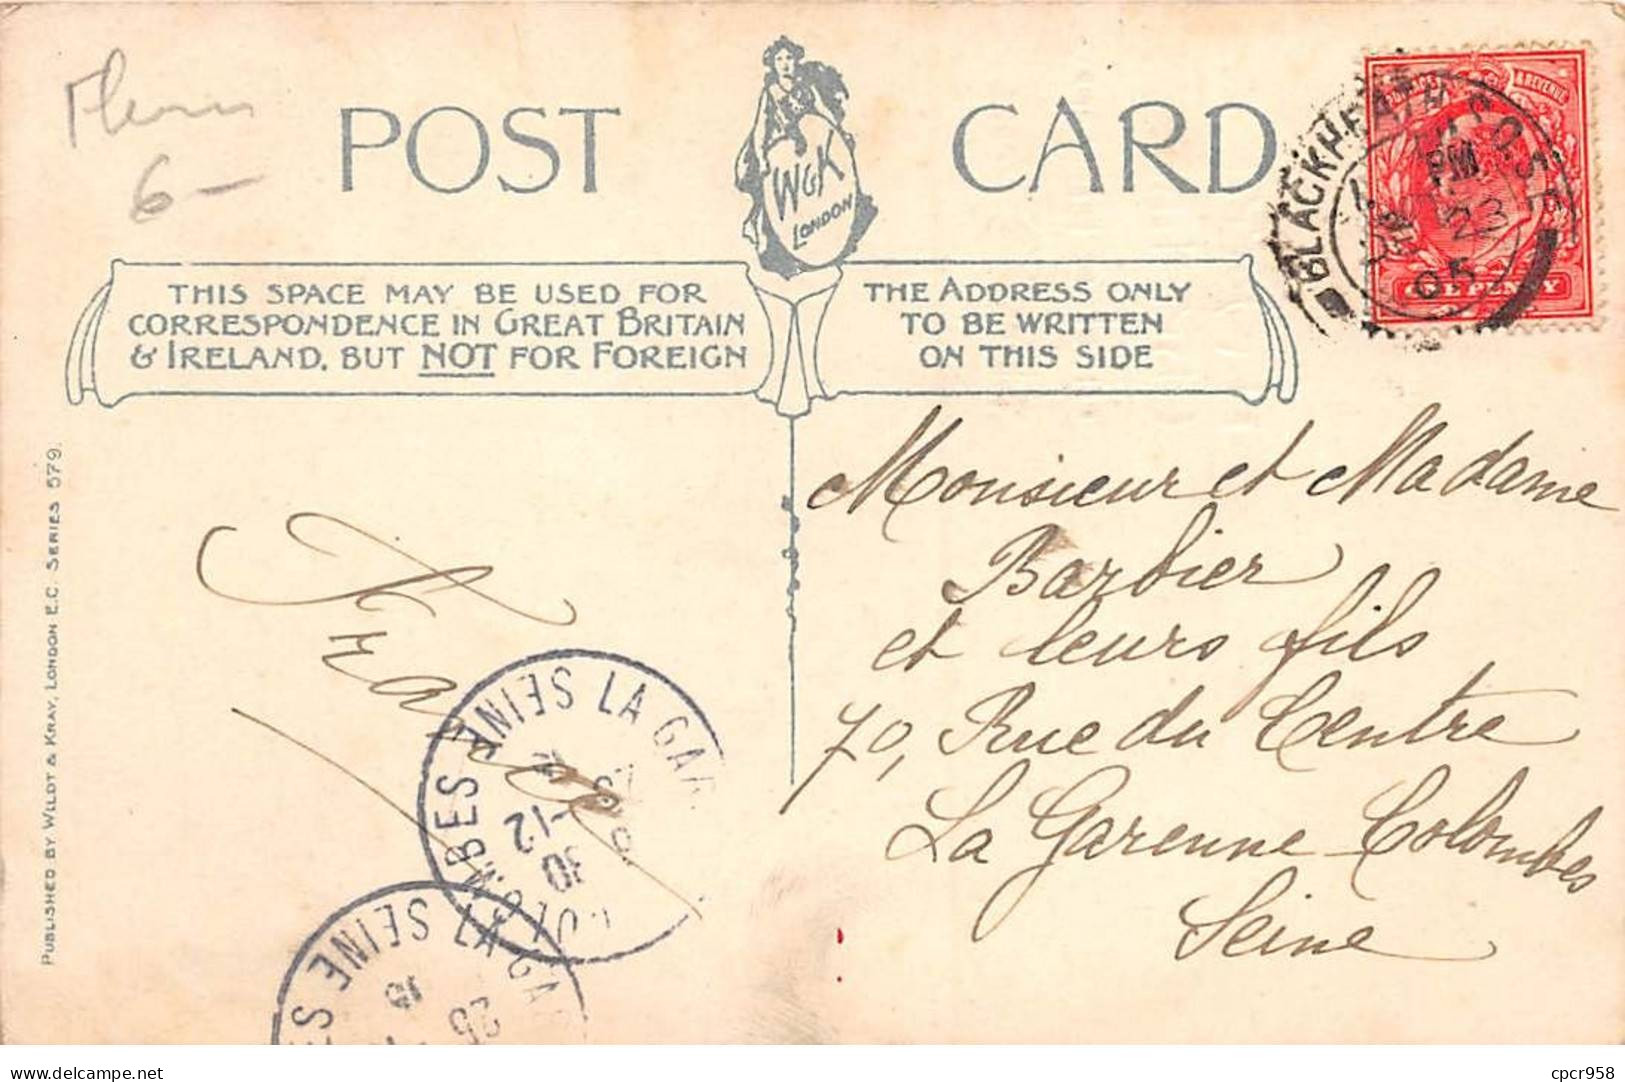 6-
POST CARD
W&K
LONDON
THIS SPACE MAY BE USED FOR
CORRESPONDENCE IN GREAT BRITAIN
& IRELAND, BUT NOT FOR FOREIGN
THE ADDRESS ONLY
TO BE WRITTEN
ON THIS SIDE
BLACKHEATH S.O. S.E.
PM
23
05
ONE PENNY
PUBLISHED BY WILDT & KRAY, LONDON E.C. SERIES 579.
Monsieur et Madame
Barbier
et leurs fils
70, Rue du Centre
La Garenne-Colombes
Seine
LA GAR
MBES SEINE
30
-12
LA GA
ES SEINE
delcampe.net
cpcr958